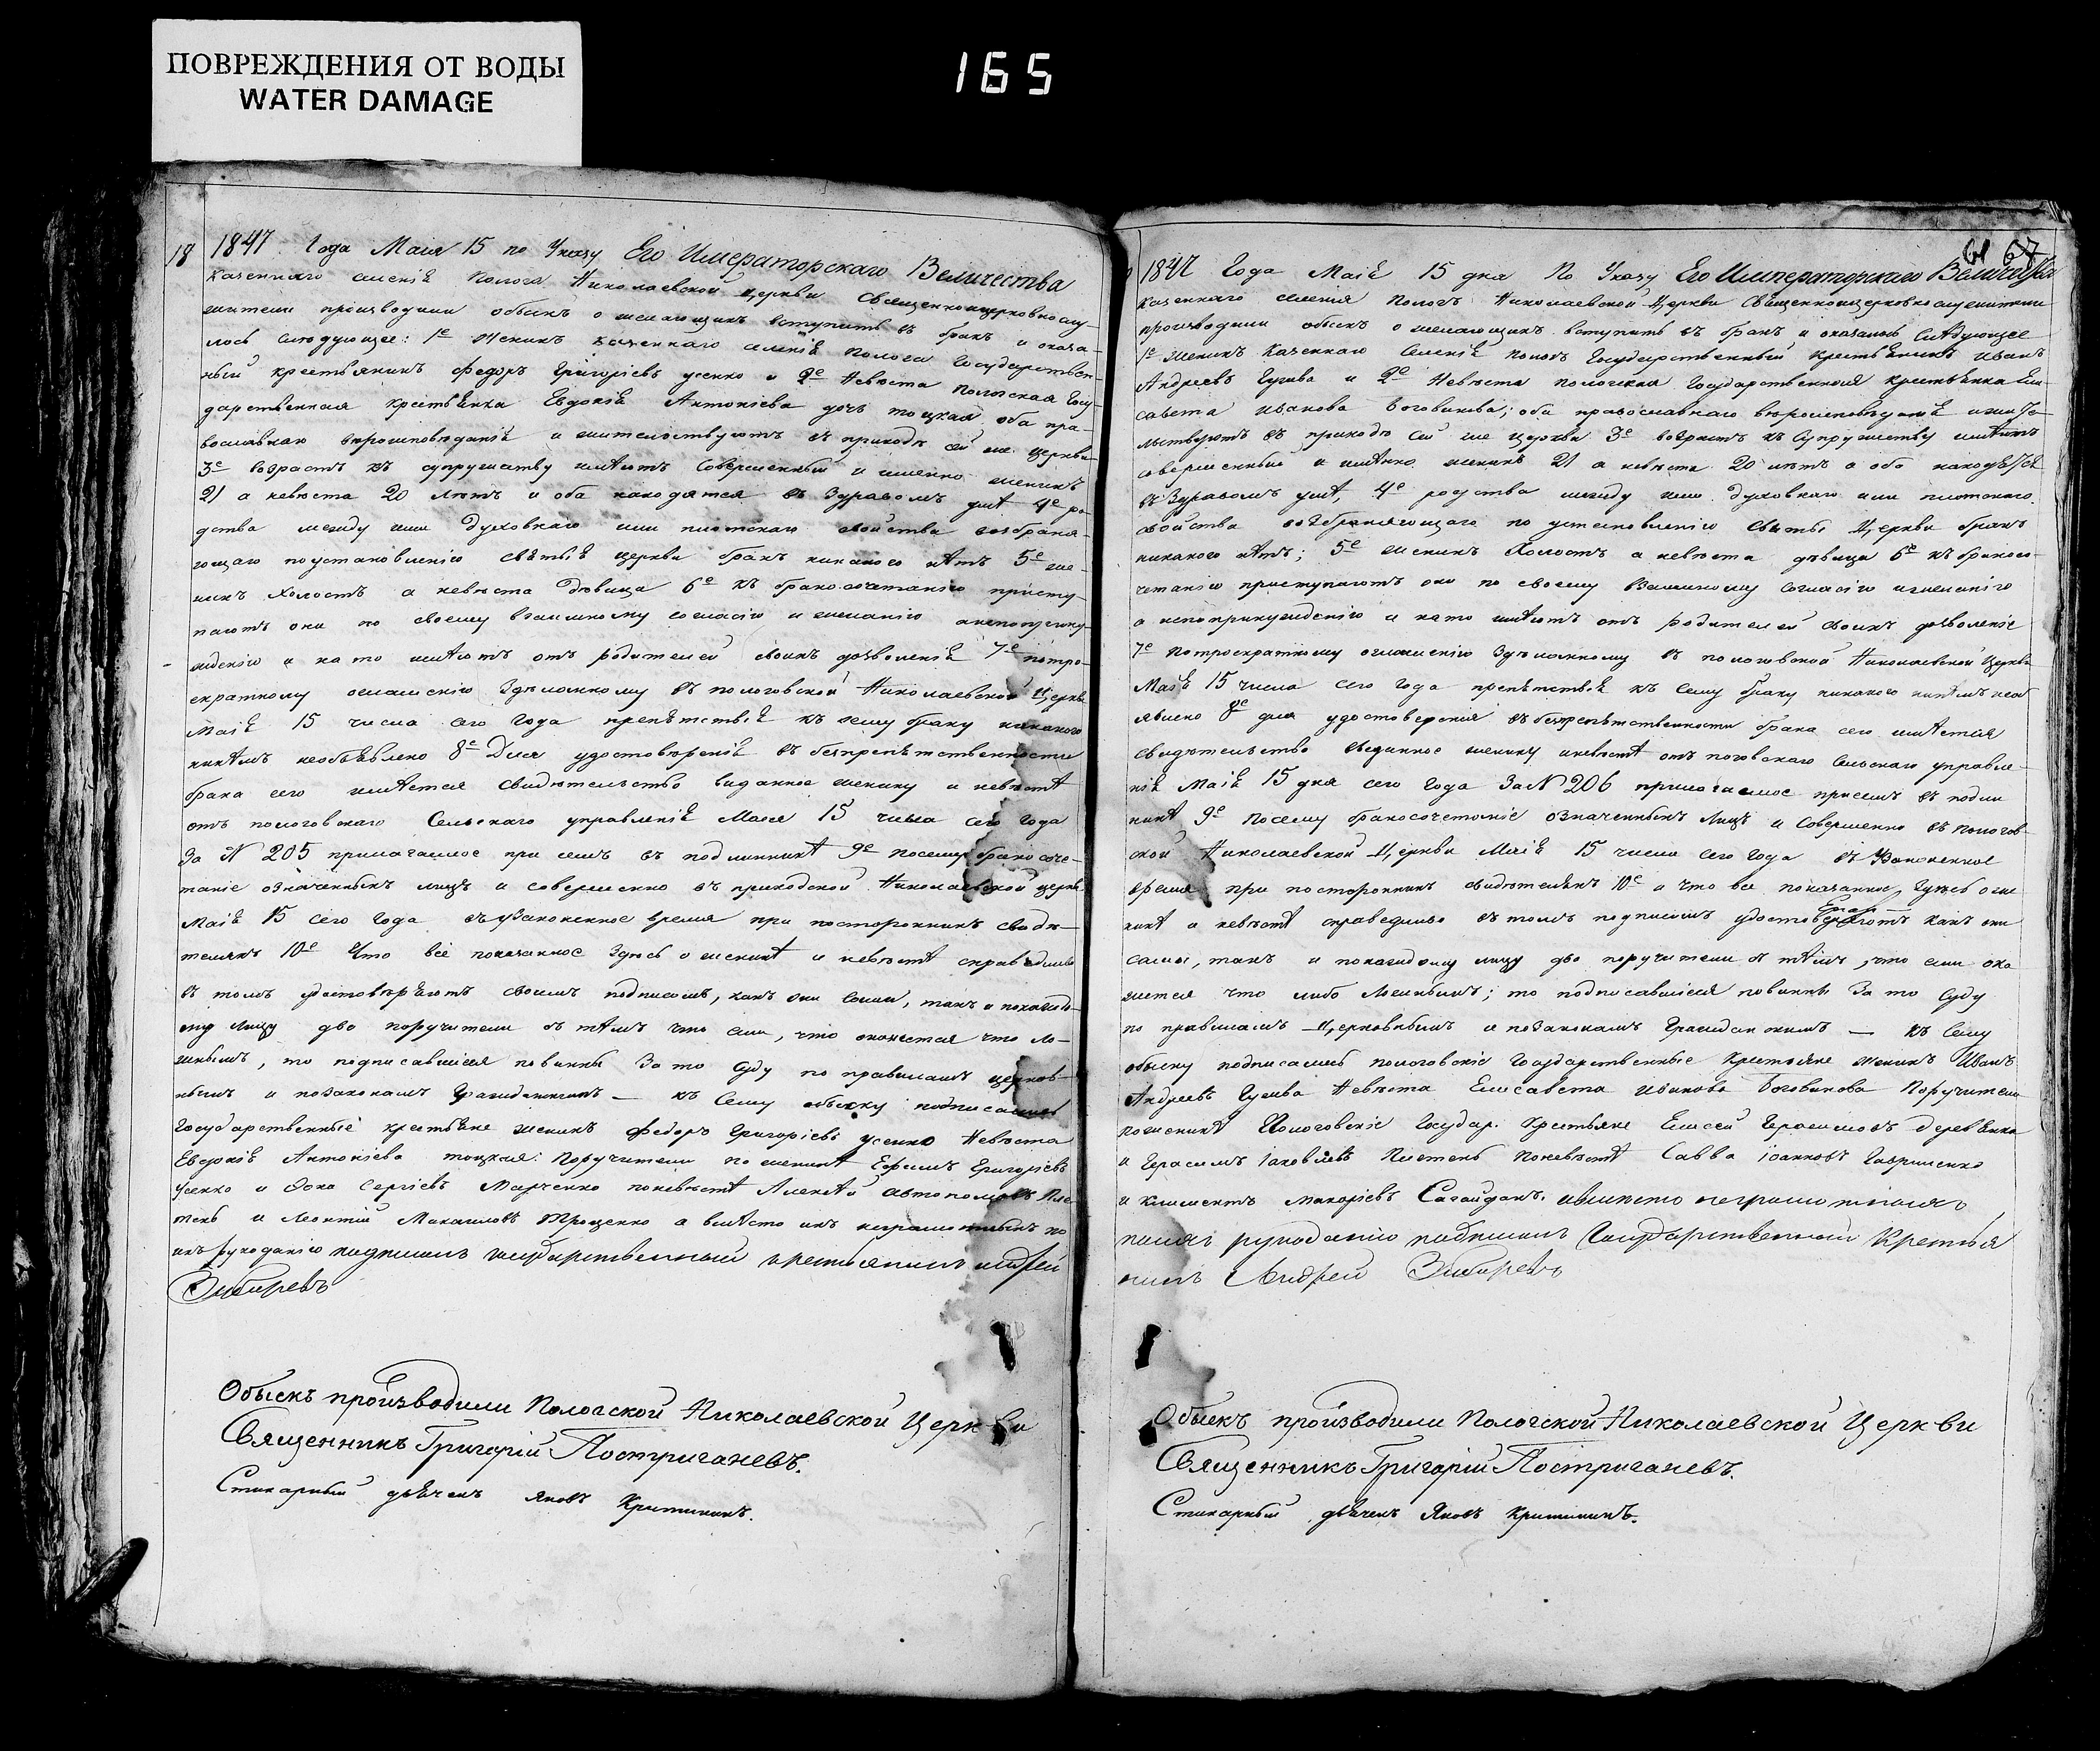 ПОВРЕЖДЕНИЯ ОТ ВОДЫ
WATER DAMAGE
165
18
1847 Года Маія 15 по Указу Его Императорскаго Величества
Казеннаго селенія Полога Николаевской церкви Священноцерковнослу-
жители производили обыскъ о желающихъ вступить въ бракъ и оказа-
лось слѣдующее: 1е Женихъ казеннаго селенія Полога Государствен-
ный крестьянинъ Федоръ Григоріевъ Усенко и 2е Невѣста Пологская Госу-
дарственная крестьянка Евдокія Антоніева дочь тоцкая, оба пра-
вославнаго вѣроисповѣданія и жительствуютъ въ приходѣ сей же церкви
3е возрастъ къ супружеству имѣютъ совершенный и именно женихъ
21 а невѣста 20 лѣтъ и оба находятся въ здравомъ умѣ 4е ро-
дства между ими духовнаго или плотскаго свойства возбраня-
ющаго по установленію святыя церкви бракъ никакого нѣтъ 5е же-
нихъ холостъ а невѣста дѣвица 6е къ бракосочетанію присту-
паютъ они по своему взаимному согласію и желанію анепопринy-
жденію и на то имѣютъ отъ родителей своихъ дозволенія 7е потрое-
екратному оглашенію здѣланному въ пологовской Николаевской Церкви
Маія 15 числа сего года препятствія къ сему браку никакого
никѣмъ необъявлено 8е Для удостовѣренія въ безпрепятственности
брака сего имѣется свидѣтельство виданное жениху и невѣстѣ
отъ пологовскаго Сельскаго управленія Маія 15 числа сего года
За N 205 прилагаемое при семъ въ подлинникѣ 9е Посему бракосоче-
таніе означенныхъ лицъ и совершенно въ приходской Николаевской церкви
Маія 15 сего года въ узаконенное время при постороннихъ свидѣ-
теляхъ 10е Что всё показанное здѣсь о женихѣ и невѣстѣ справедливо
въ томъ удостовѣряютъ своимъ подписомъ, какъ они сами, такъ и покаждо-
му лицу два поручители съ тѣмъ что ели, что окажется что ло-
жнымъ, то подписавшіеся повинны за то суду по правиламъ церков-
нымъ и позаконамъ Гражданскимъ — къ сему обыску подписались
Государственные крестьяне женихъ Федоръ Григоріевъ Усенко Невѣста
Евдокія Антоніева тоцкая: Поручители по женихѣ Ефимъ Григоріевъ
Усенко и Фока Сергіевъ Марченко поневѣстѣ Алексѣй Автономовъ Пле-
тень и Леонтій Михаиловъ Троценко а вмѣсто ихъ неграмотныхъ по
ихъ рукоданію подписалъ государственный крестьянинъ Андрей
Зибаревъ
Обыскъ производили Пологской Николаевской Церкви
Священникъ Григорій Постригачевъ.
Стихарный дьячекъ Яковъ Критининъ.
61 67
1847 Года Маія 15 дня По Указу Его Императорскаго Величества
Казеннаго селенія Пологъ Николаевской Церкви Священноицерковнослужители
производили обыскъ о желающихъ вступить въ бракъ и оказалось Слѣдующее
1е женихъ Казеннаго Селенія Пологъ Государственный крестьянинъ Иванъ
Андреевъ Гугива и 2е Невѣста пологская Государственная крестьянка Ели-
савета Иванова Боговикова; оба православнаго вѣроисповѣданія ижите-
льствуютъ въ приходѣ сей же церкви 3е возрастъ къ супружеству имѣютъ
совершенный и имянно женихъ 21 а невѣста 20 лѣтъ а оба находятся
въ здравомъ умѣ, 4е родства между ими духовнаго или плотскаго
свойства возбраняющаго по установленію Святыя Церкви бракъ
никакого нѣтъ; 5е женихъ Холостъ а невѣста дѣвица 6е къ бракосо-
четанію приступаютъ они по своему Взаимному согласію ижеланію
а непопринужденію и нато имѣютъ отъ родителей своихъ дозволеніе
7е Потроекратному оглашенію здѣланному въ пологовской Николаевской Церкви
Маія 15 числа сего года препятствія къ сему браку никакого никѣмъ необ
явлено 8е для удостоверенія въ безпрепятственности брака сего имѣется
свидѣтельство виданное жениху иневѣстѣ отъ поговскаго Сельскаго управле-
нія Маія 15 дня сего года За N 206 прилагаемое присемъ въ подли
никѣ 9е Посему бракосочетаніе означенныхъ лицъ и совершенно въ пологов-
ской Николаевской Церкви Маія 15 числа сего года въ Узаконенное
время при постороннихъ свидѣтеляхъ 10е а что все показанное здѣсь о же
нихѣ и невѣстѣ справедливо въ томъ подписомъ удостоверяютъ какъ они
сами, такъ и покаждому лицу два поручители съ тѣмъ, что ели ока
жется что либо ложнымъ; то подписавшіеся повинны за то суду
по правиламъ Церковнымъ и позаконамъ гражданскимъ — къ сему
обыску подписались пологовскіе государственные крестьяне женихъ Иванъ
Андреевъ Гугива Невѣста Елисавета Иванова Боговикова Поручители
поженихѣ Пологовскіе Государ. Крестьяне Елисей Герасимовъ деревянко
и Герасимъ Іаковлевъ Плетень Поневѣстѣ Савва Іоанновъ Гавриленко
и Климентъ Макаріевъ Сагайдакъ. авместо неграмотныхъ
поихъ рукоданію подписалъ Государственный Крестья
нинъ Андрей Зибаревъ
Обыскъ производили Пологской Николаевской Церкви
Священникъ Григорій Постригачевъ.
Стихарный дьячекъ Яковъ Критининъ.